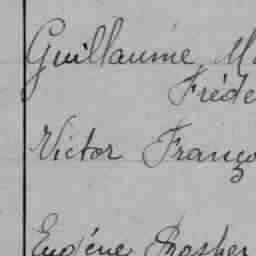 Guillaume M
Fréde
Victor Franço
Eugène Prosper